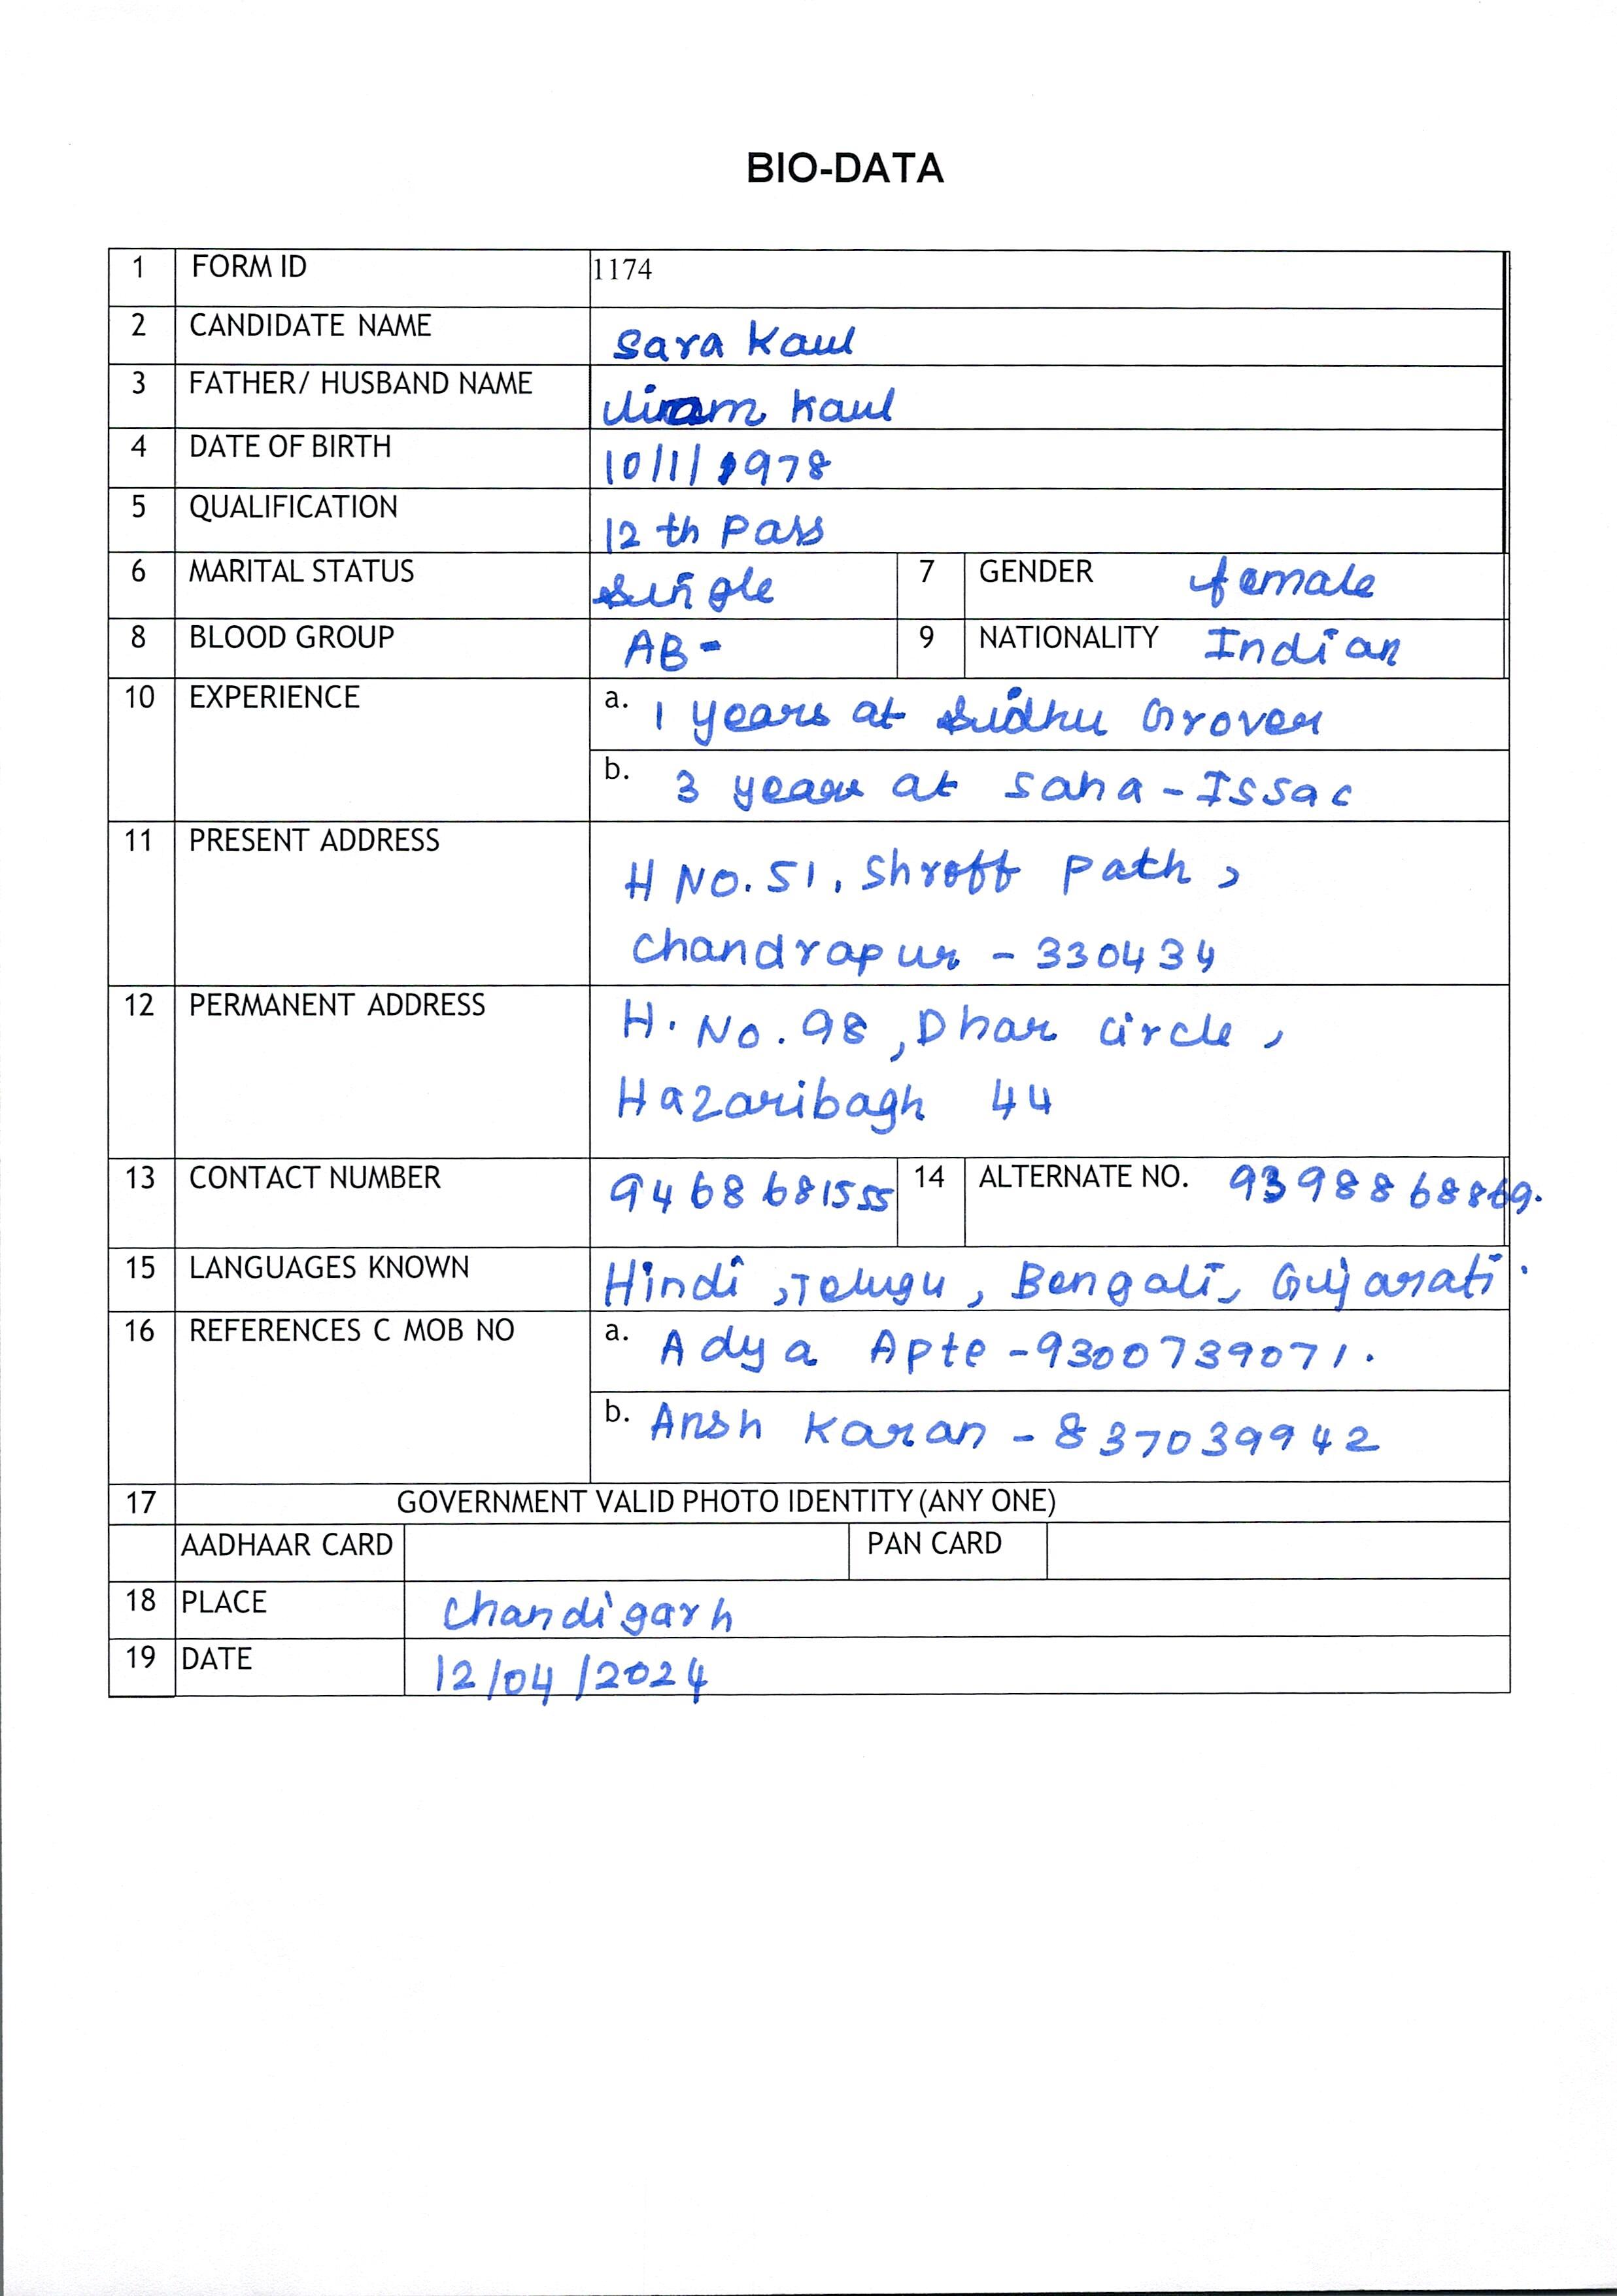 BIO-DATA
1 FORM ID 1174
2 CANDIDATE NAME Sara Kaul
3 FATHER/ HUSBAND NAME Kaul
4 DATE OF BIRTH 10/1/1978
5 QUALIFICATION 12 th Pass
6 MARITAL STATUS Single 7 GENDER female
8 BLOOD GROUP AB- 9 NATIONALITY Indian
10 EXPERIENCE a. 1 years at Sidhu Grover
b. 3 years at Saha-Issac
11 PRESENT ADDRESS H NO. 51, Shroff Path,
Chandrapur - 330434
12 PERMANENT ADDRESS H. No. 98, Dhar Circle,
Hazaribagh 44
13 CONTACT NUMBER 9468681555 14 ALTERNATE NO. 9398868869.
15 LANGUAGES KNOWN Hindi, Telugu, Bengali, Gujarati.
16 REFERENCES C MOB NO a. Adya Apte -9300739071.
b. Ansh Karan - 837039942
17 GOVERNMENT VALID PHOTO IDENTITY (ANY ONE)
AADHAAR CARD PAN CARD
18 PLACE Chandigarh
19 DATE 12/04/2024